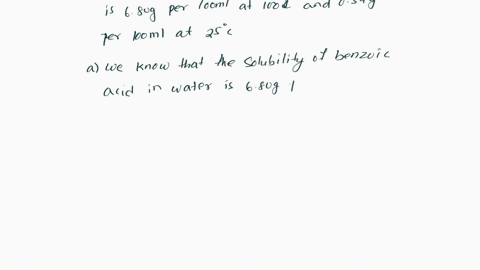 is 6.80g per 100ml at 100°c and 0.34g
per 100ml at 25°c
a) we know that the solubility of benzoic
acid in water is 6.80g |